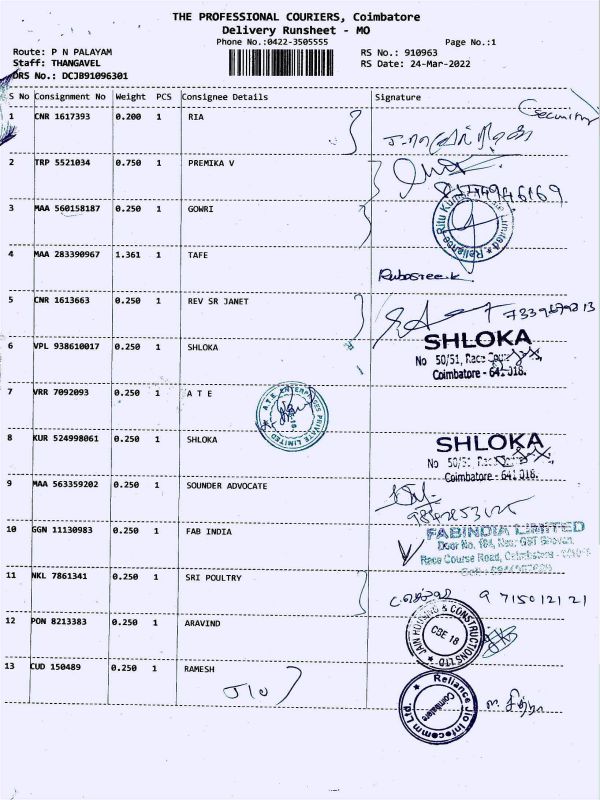 THE PROFESSIONAL COURIERS, Coimbatore
Delivery Runsheet - MO
Phone No.:0422-3505555 Page No.:1
Route: P N PALAYAM RS No.: 910963
Staff: THANGAVEL RS Date: 24-Mar-2022
DRS No.: DCJB91096301
S No Consignment No Weight PCS Consignee Details Signature
Csecurity
1 CNR 1617393 0.200 1 RIA
2 TRP 5521034 0.750 1 PREMIKA V
3 MAA 560158187 0.250 1 GOWRI
4 MAA 283390967 1.361 1 TAFE
Rubasree.k
5 CNR 1613663 0.250 1 REV SR JANET
6 VPL 938610017 0.250 1 SHLOKA
SHLOKA
No 50/51, Race
Coimbatore - 641 018.
7 VRR 7092093 0.250 1 A T E
A.T.E. ENTERPRISES PRIVATE LIMITED
8 KUR 524998061 0.250 1 SHLOKA
SHLOKA
No 50/51, Race
Coimbatore - 641 018.
9 MAA 563359202 0.250 1 SOUNDER ADVOCATE
10 GGN 11130983 0.250 1 FAB INDIA
FABINDIA LIMITED
Door No.
Race Course Road, Coimbatore
11 NKL 7861341 0.250 1 SRI POULTRY
9 715012121
12 PON 8213383 0.250 1 ARAVIND
JAIN HOUSING & CONSTRUCTIONS LTD
CBE 18
13 CUD 150489 0.250 1 RAMESH
JIO
Reliance Jio Infocomm Ltd
Coimbatore